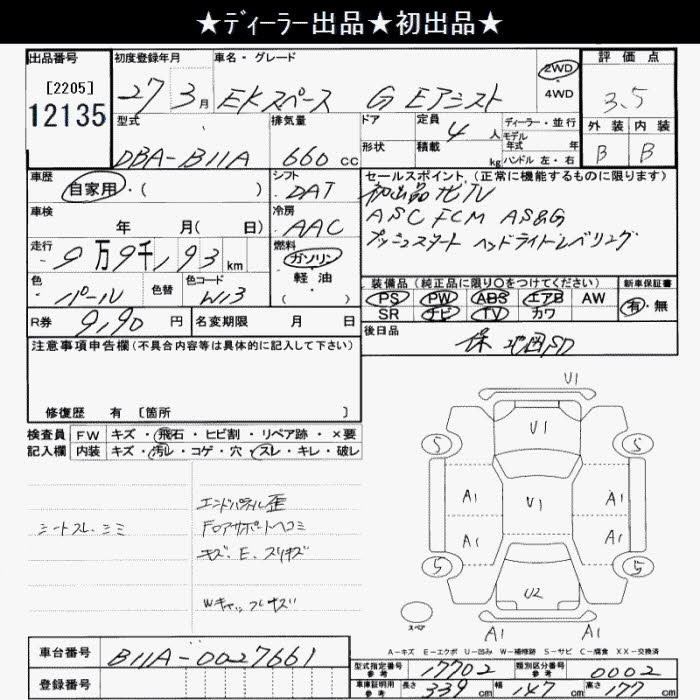 ★ディーラー出品★初出品★
出品番号 初度登録年月 車名・グレード 評価点
[2205] 27年3月 EKスペース G Eアシスト 2WD 4WD 3.5
12135 型式 排気量 ドア 定員 4人 ディーラー・並行 外装 内装
DBA-B11A 660cc 形状 積載 kg モデル年式 年 ハンドル 左・右 B B
車歴 自家用・( ) シフト DAT セールスポイント(正常に機能するものに限ります)
初出品 地TV
車検 年 月( 日) 冷房 AAC ASC FCM AS&G
プッシュスタート ヘッドライトレベリング
走行 9万9千193km 燃料 ガソリン 軽油 ( )
色 パール 色替 色コード W13 装備品(純正品に限り○をつけてください) 新車保証書
PS PW ABS エアB AW 有・無
SR ナビ TV カワ
R券 9,190円 名変期限 月 日 後日品
保 地図SD
注意事項申告欄(不具合内容等は具体的に記入して下さい)
修復歴 有 [箇所 ]
検査員 FW キズ・飛石・ヒビ割・リペア跡・×要
記入欄 内装 キズ・汚レ・コゲ・穴・スレ・キレ・破レ
エンドパネル歪
シートスレ、シミ Fロアサポートヘコミ
キズ、E、スリキズ
Wキャップキズ
U1
U1
5 5
A1 U1 A1
A1 A1
5 5
U2
スペア A1 A1
A-キズ E-エクボ U-凹み W-補修跡 S-サビ C-腐食 XX-交換済
車台番号 B11A-0027661 型式指定番号 参考 17702 類別区分番号 参考 0002
登録番号 車庫証明用 参考 長さ 339cm 幅 147cm 高さ 177cm